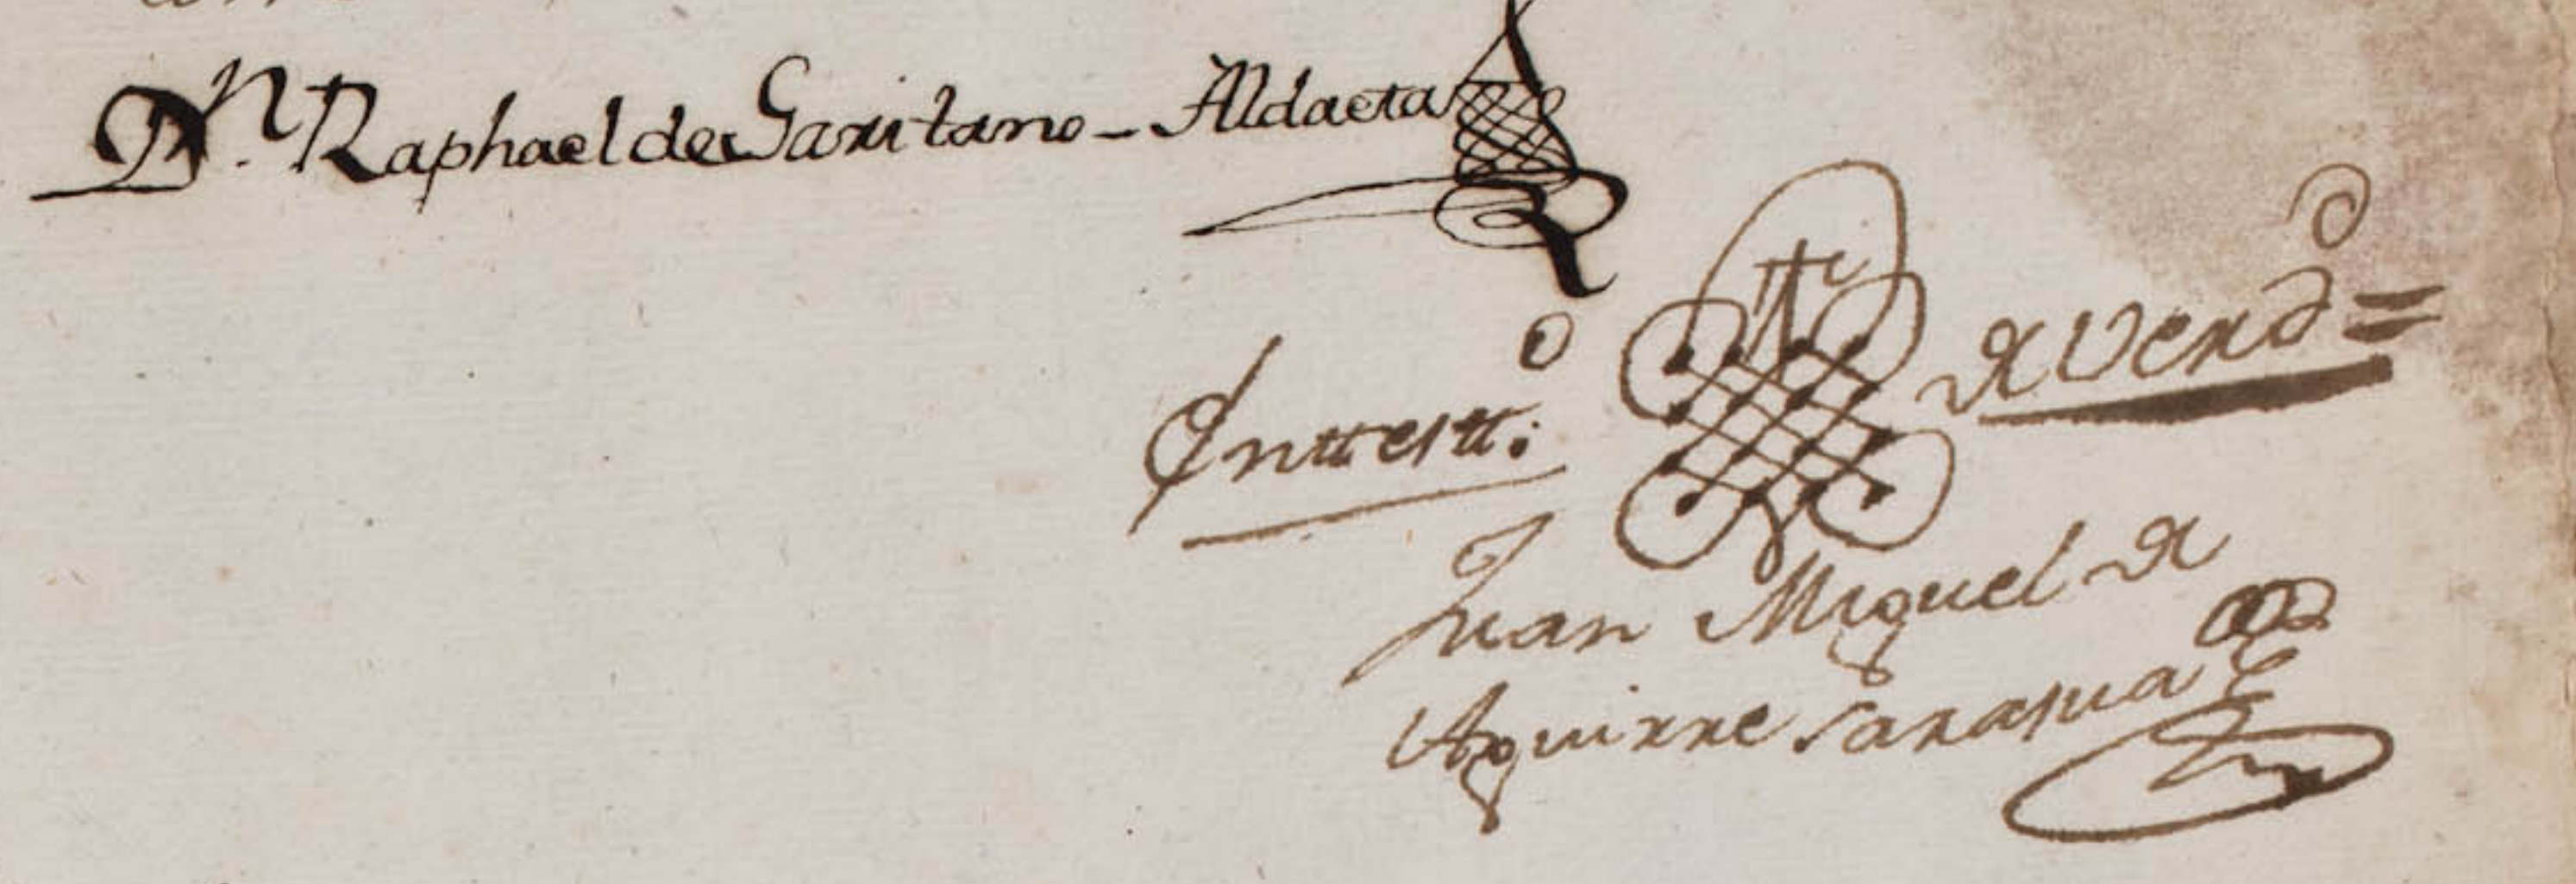 Dn. Raphael de Garitano-Aldaeta
En ttestto. de verdd.=
Juan Miguel de
Aguirre sarasua